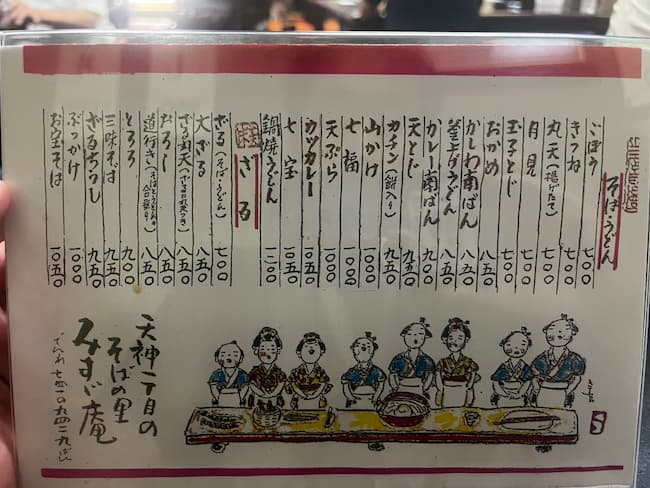 そば・うどん
ごぼう 七〇〇
きつね 七〇〇
丸天(揚げたて) 七〇〇
月見 七〇〇
玉子とじ 七〇〇
おかめ 八五〇
かしわ南ばん 七五〇
釜上げうどん 七五〇
カレー南ばん 八五〇
天とじ 九五〇
カチン(餅入り) 八五〇
山かけ 九〇〇
七福 一〇〇〇
天ぷら 一〇〇〇
カツカレー 一〇五〇
七宝 一〇五〇
鍋焼うどん 一一二〇〇
ざる
ざる(そば・うどん) 七〇〇
大ざる 八五〇
ざる丸天(ざるに丸天つき) 八五〇
おろし 八五〇
道行き(そばとうどんの合盛り) 八五〇
とろろ 九〇〇
三味そば 九五〇
ざるちらし 九五〇
ぶっかけ 一〇〇〇
お宝そば 一〇五〇
天神一丁目の
そばの里
みすゞ庵
でんわ 七一一の九四二九ばん